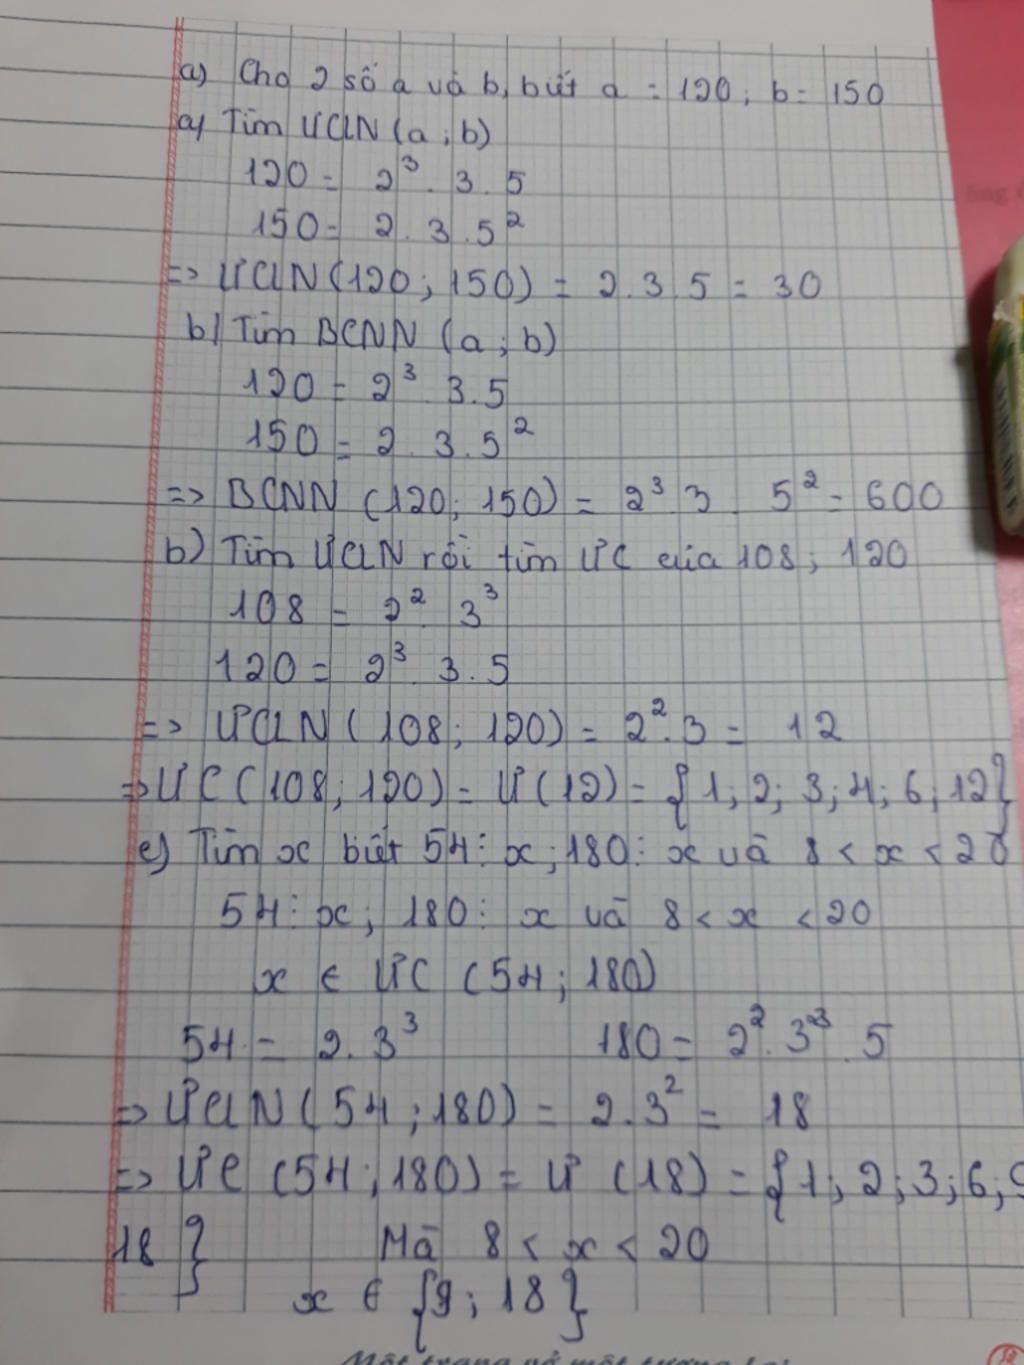 a) Cho 2 số a và b, biết a = 120; b = 150
a) Tìm ƯCLN (a; b)
120 = 2³. 3. 5
150 = 2. 3. 5²
=> ƯCLN (120; 150) = 2.3.5 = 30
b) Tìm BCNN (a; b)
120 = 2³ 3.5
150 = 2. 3.5²
=> BCNN (120; 150) = 2³ 3 5² = 600
b) Tìm ƯCLN rồi tìm ƯC của 108; 120
108 = 2². 3³
120 = 2³ 3.5
=> ƯCLN (108; 120) = 2².3 = 12
=> ƯC (108; 120) = Ư(12) = {1; 2; 3; 4; 6; 12}
c) Tìm x biết 54 ⋮ x; 180 ⋮ x và 8 < x < 20
54 ⋮ x; 180 ⋮ x và 8 < x < 20
x ∈ ƯC (54; 180)
54 = 2.3³ 180 = 2². 3². 5
=> ƯCLN (54; 180) = 2.3² = 18
=> ƯC (54; 180) = Ư (18) = {1; 2; 3; 6; 9
18 } Mà 8 < x < 20
x ∈ {9; 18}